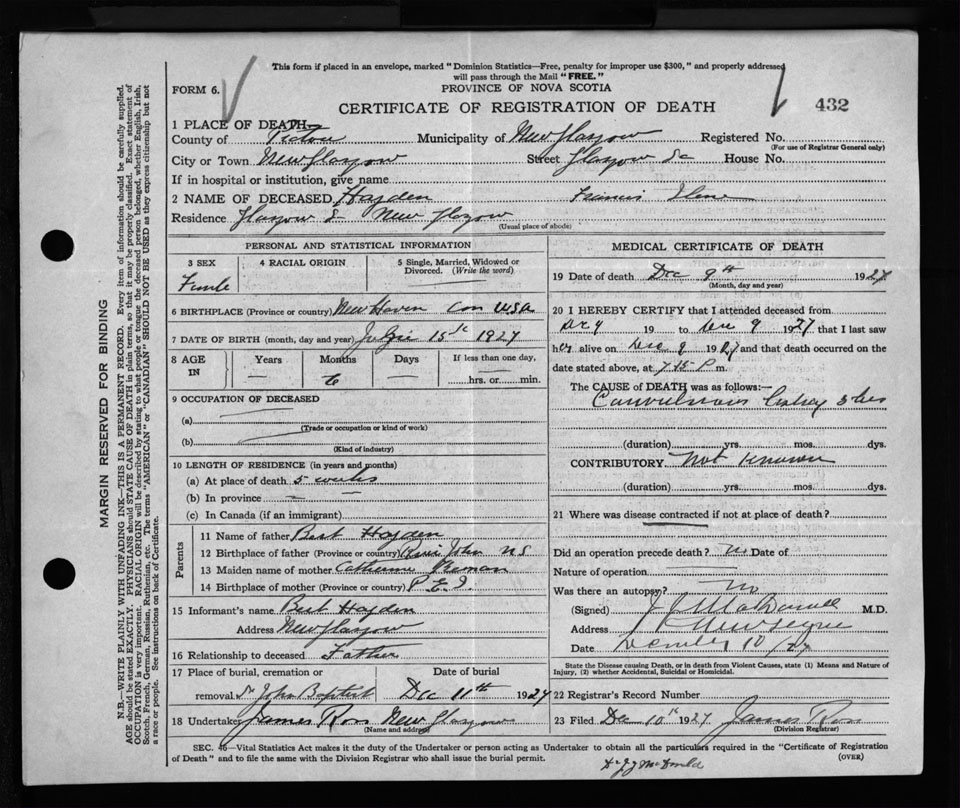 This form if placed in an envelope, marked "Dominion Statistics—Free, penalty for improper use $300," and properly addressed
will pass through the Mail "FREE."
FORM 6.
PROVINCE OF NOVA SCOTIA
CERTIFICATE OF REGISTRATION OF DEATH
432
1 PLACE OF DEATH
County of Pictou Municipality of New Glasgow Registered No.
(For use of Registrar General only)
City or Town New Glasgow Street Glasgow St House No.
If in hospital or institution, give name
2 NAME OF DECEASED Hayden Francis
Residence Glasgow St New Glasgow
(Usual place of abode)
PERSONAL AND STATISTICAL INFORMATION
3 SEX
4 RACIAL ORIGIN
5 Single, Married, Widowed or
Divorced. (Write the word)
Female
6 BIRTHPLACE (Province or country) New Haven Con USA
7 DATE OF BIRTH (month, day and year) 15th 1927
8 AGE
IN
Years
Months
Days
If less than one day,
— 6 —
hrs. or min.
9 OCCUPATION OF DECEASED
(a)
(Trade or occupation or kind of work)
(b)
(Kind of industry)
10 LENGTH OF RESIDENCE (in years and months)
(a) At place of death 5 weeks
(b) In province —
(c) In Canada (if an immigrant)
Parents
11 Name of father Bert Hayden
12 Birthplace of father (Province or country) John NS
13 Maiden name of mother Catherine
14 Birthplace of mother (Province or country) P.E.I.
15 Informant's name Bert Hayden
Address New Glasgow
16 Relationship to deceased Father
17 Place of burial, cremation or
Date of burial
removal St John Baptist Dec 11th 1927
18 Undertaker James Ross New Glasgow
(Name and address)
MEDICAL CERTIFICATE OF DEATH
19 Date of death Dec 9th 1927
(Month, day and year)
20 I HEREBY CERTIFY that I attended deceased from
Dec 9 19 to Dec 9 1927 that I last saw
her alive on Dec 9 1927 and that death occurred on the
date stated above, at 7 15 P m.
The CAUSE of DEATH was as follows:—
Convulsions
(duration) yrs. mos. dys.
CONTRIBUTORY Not known
(duration) yrs. mos. dys.
21 Where was disease contracted if not at place of death?
Did an operation precede death? No Date of
Nature of operation
Was there an autopsy? No
(Signed) M.D.
Address
Date December 10/27
State the Disease causing Death, or in death from Violent Causes, state (1) Means and Nature
of Injury, (2) whether Accidental, Suicidal or Homicidal.
22 Registrar's Record Number
23 Filed Dec 10th 1927 James Ross
(Division Registrar)
SEC. 46—Vital Statistics Act makes it the duty of the Undertaker or person acting as Undertaker to obtain all the particulars required in the "Certificate of Registration
of Death" and to file the same with the Division Registrar who shall issue the burial permit.
(OVER)
Dr J J McDonald
MARGIN RESERVED FOR BINDING
N.B.—WRITE PLAINLY WITH UNFADING INK—THIS IS A PERMANENT RECORD. Every item of information should be carefully supplied.
AGE should be stated EXACTLY. PHYSICIANS should STATE CAUSE OF DEATH in plain terms, so that it may be properly classified. Exact statement of
OCCUPATION is very important. RACIAL ORIGIN will be described by stating to what people or tongue the deceased person belonged, whether English, Irish,
Scotch, French, German, Russian, Ruthenian, etc. The terms "AMERICAN" or "CANADIAN" SHOULD NOT BE USED as they express citizenship but not
a race or people. See instructions on back of Certificate.